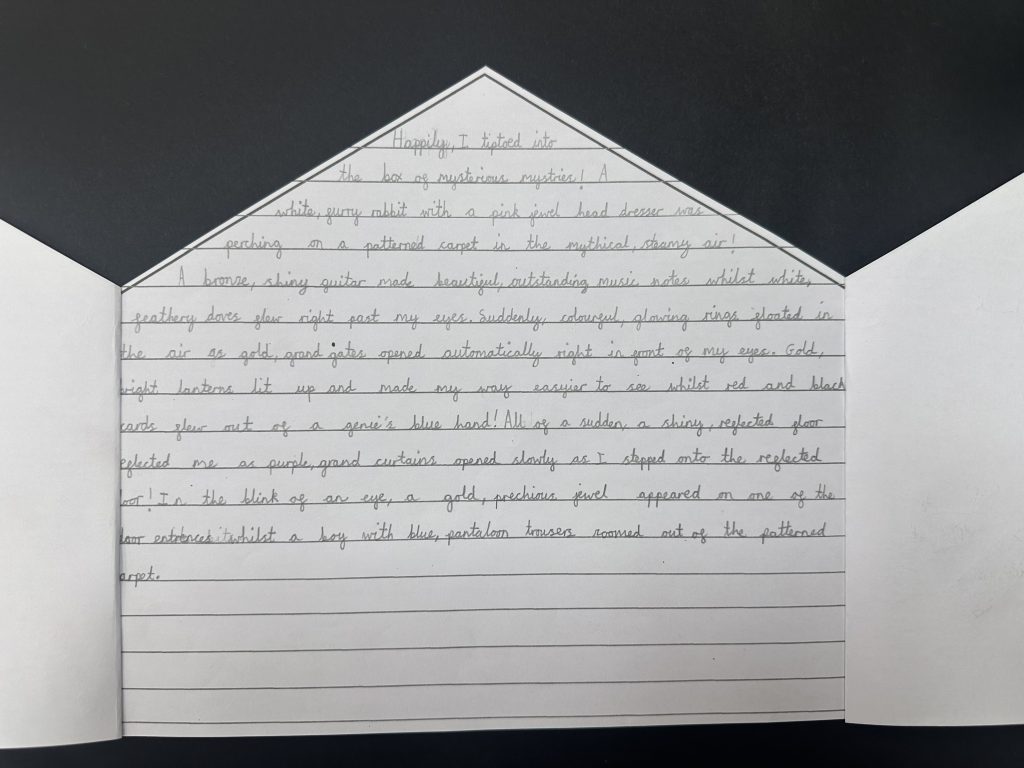 Happily, I tiptoed into
the box of mysterious mystries! A
white, furry rabbit with a pink jewel head dresser was
perching on a patterned carpet in the mythical, steamy air!
A bronze, shiny guitar made beautiful, outstanding music notes whilst white,
feathery doves flew right past my eyes. Suddenly, colourful, glowing rings floated in
the air as gold, grand gates opened automatically right in front of my eyes. Gold,
bright lanterns lit up and made my way easyier to see whilst red and black
cards flew out of a genie's blue hand! All of a sudden, a shiny, reflected floor
eflected me as purple, grand curtains opened slowly as I stepped onto the reflected
loor! In the blink of an eye, a gold, prechious jewel appeared on one of the
whilst a boy with blue, pantaloon trousers roomed out of the patterned
arpet.